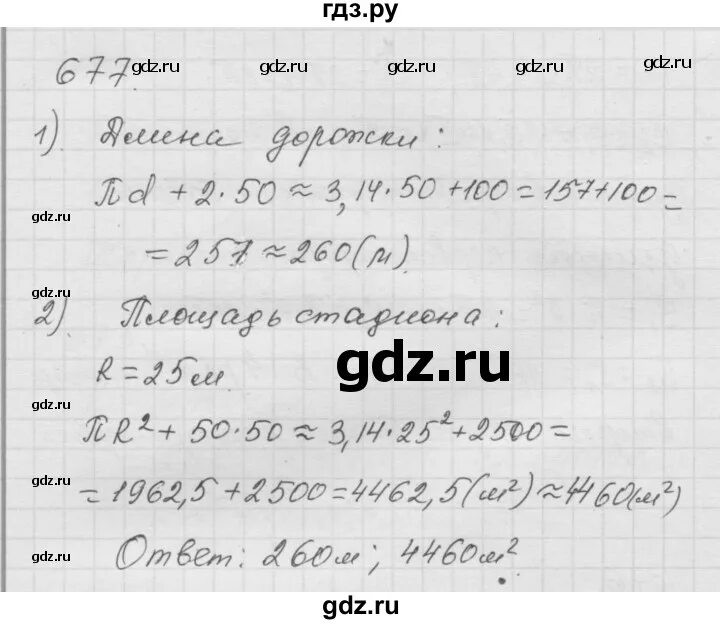 гдз.ру
677.
gdz.ru gdz.ru gdz.ru gdz.ru
1). Длина дорожки:
gdz.ru gdz.ru gdz.ru
πd + 2·50 ≈ 3,14·50+100 = 157+100 =
gdz.ru
= 257 ≈ 260(м).
gdz.ru
2). Площадь стадиона:
gdz.ru
R = 25м.
gdz.ru
πR² + 50·50 ≈ 3,14·25²+2500 =
gdz.ru
= 1962,5 + 2500 = 4462,5(м²) ≈ 4460(м²)
Ответ: 260м; 4460м².
gdz.ru
gdz.ru